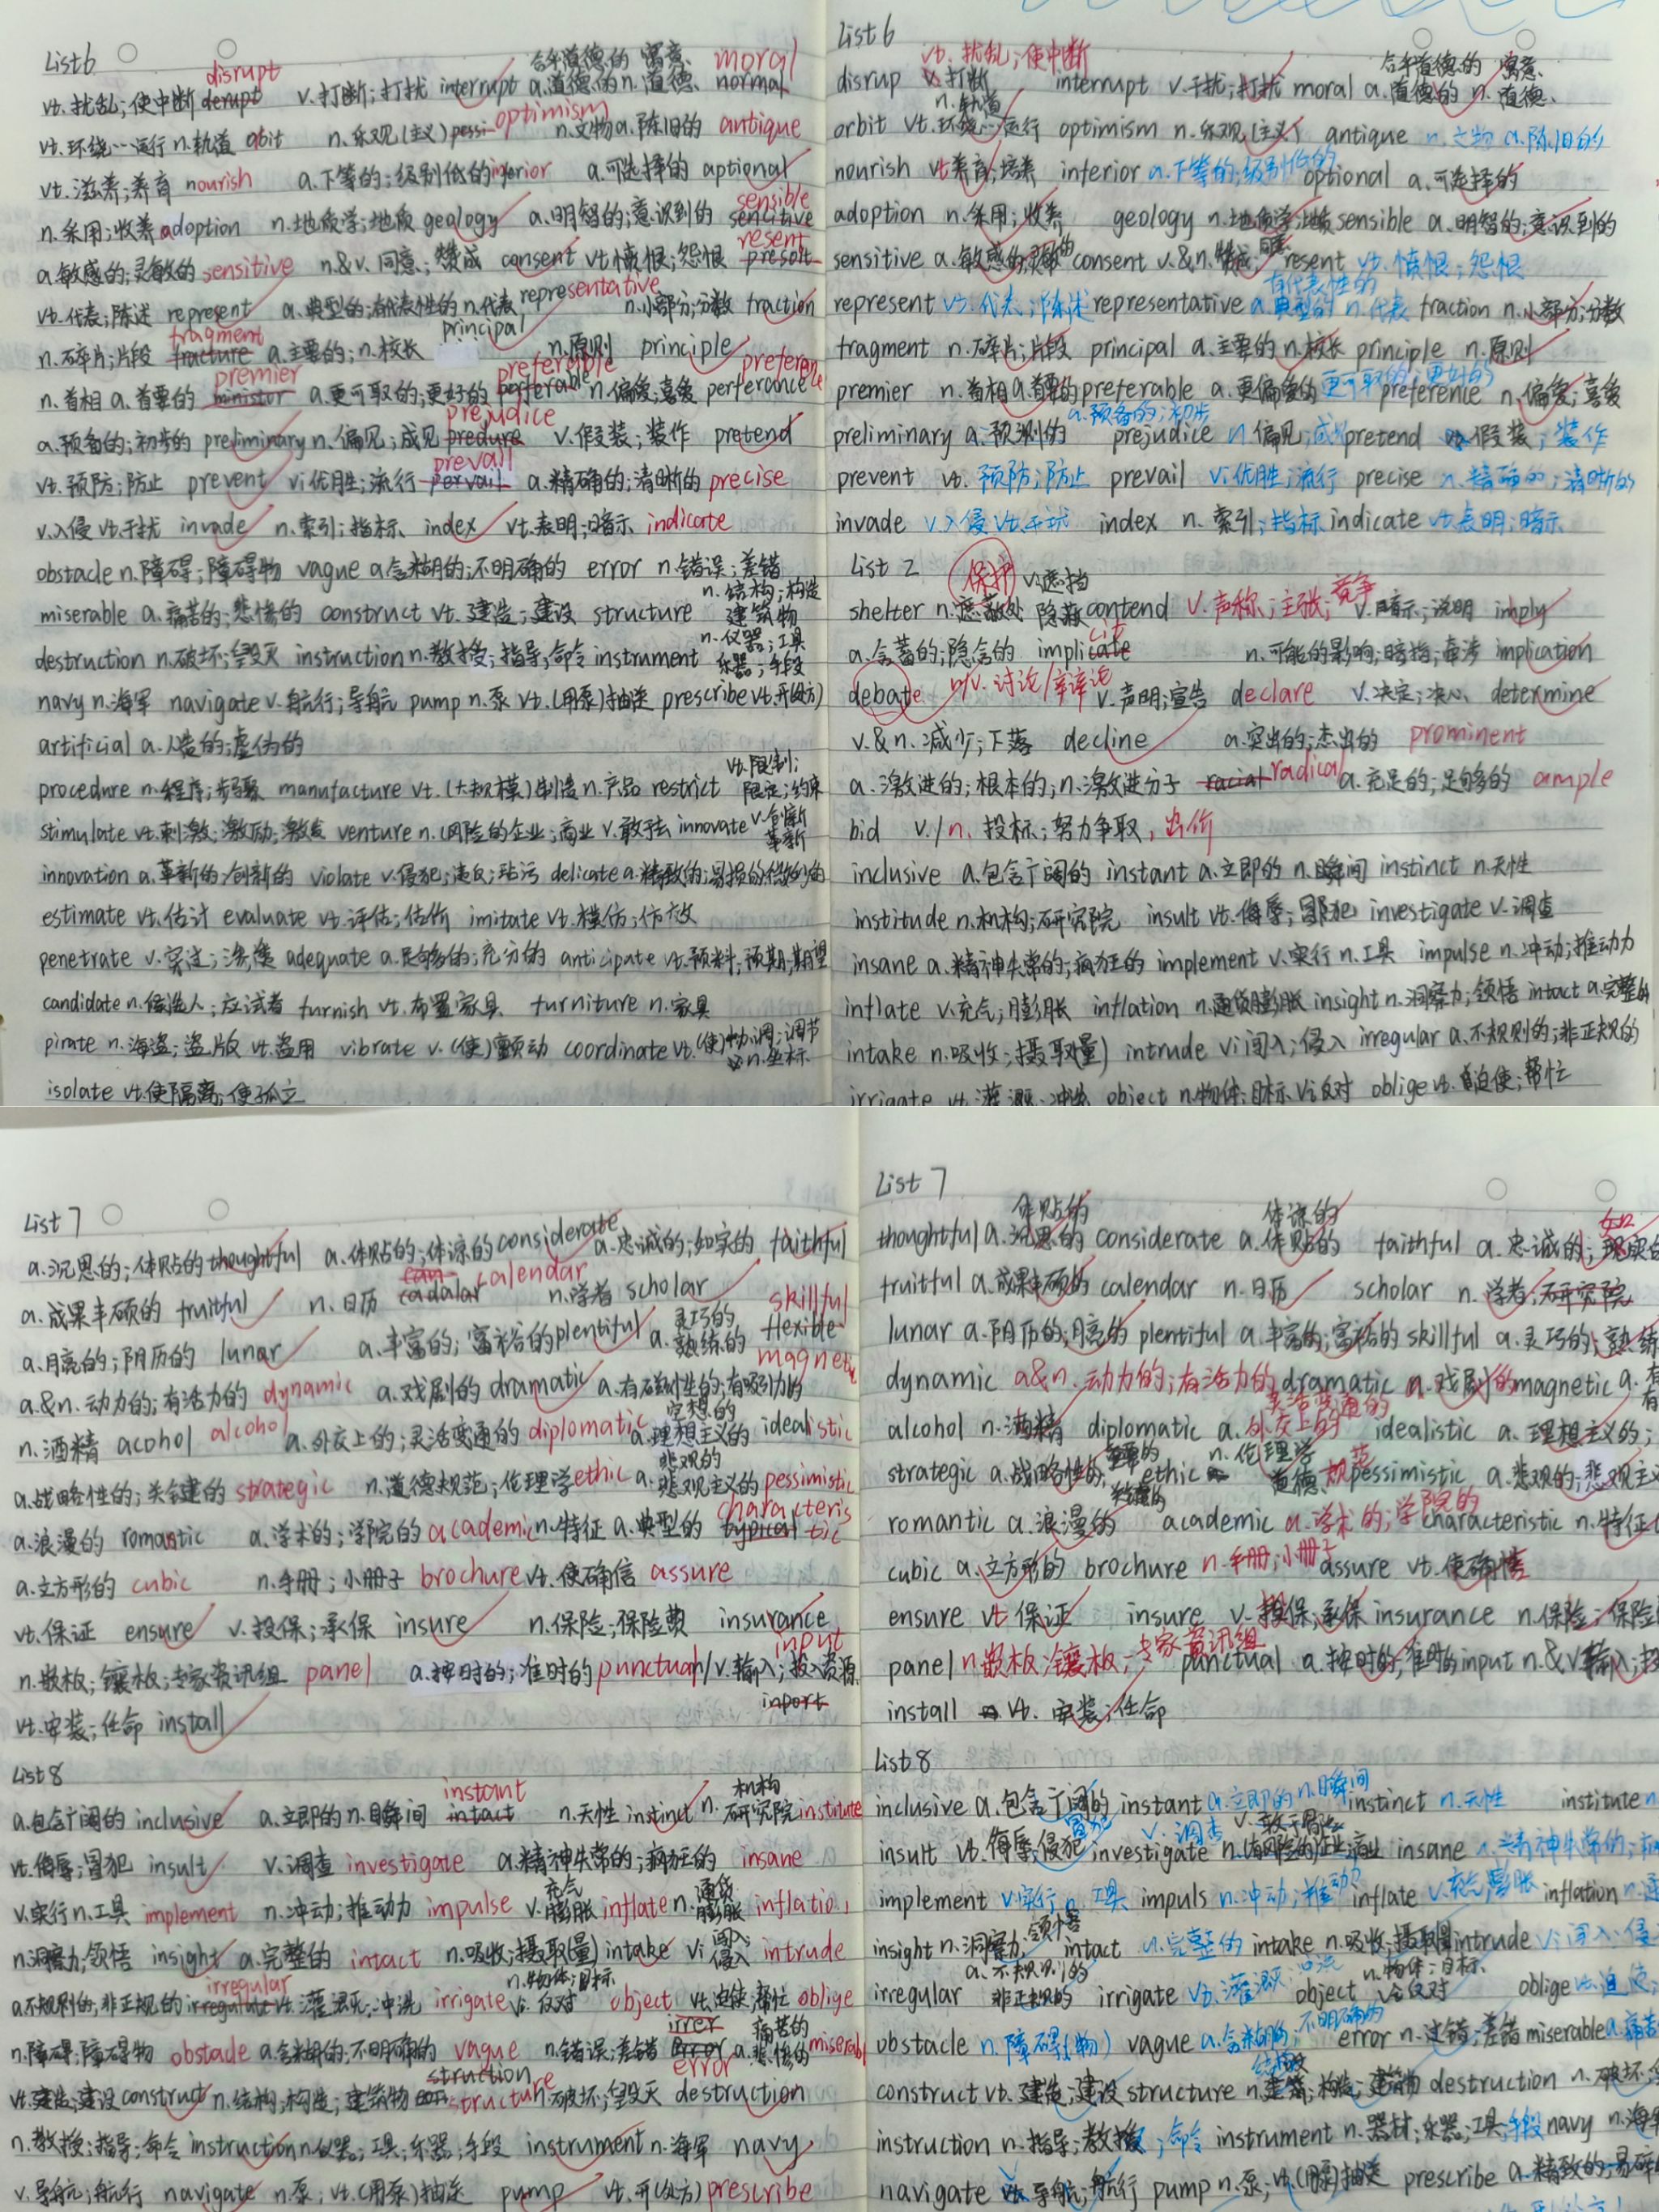 List6
disrupt 合乎道德的 寓意 moral
vt. 扰乱;使中断 derupt v.打断;打扰 interrupt a.道德的 n.道德、 normal
vt.环绕…运行 n.轨道 obit n.乐观(主义) pessi- optimism n.文物 a.陈旧的 antique
vt.滋养;养育 nourish a.下等的;级别低的 inferior a.可选择的 optional
n.采用;收养 adoption n.地质学;地质 geology a.明智的;意识到的 sencitive sensible
a.敏感的;灵敏的 sensitive n.&v.同意;赞成 consent vt.愤恨;怨恨 resent
vt.代表;陈述 represent a.典型的;有代表性的 n.代表 representative n.小部分;分数 fraction
n.碎片;片段 fracture fragment a.主要的; n.校长 principal n.原则 principle
n.首相 a.首要的 minister premier a.更可取的;更好的 perferable preferable n.偏爱;喜爱 perferance preference
a.预备的;初步的 preliminary n.偏见;成见 predure prejudice v.假装;装作 pretend
vt.预防;防止 prevent vi.优胜;流行 pervail prevail a.精确的;清晰的 precise
v.入侵 vt.干扰 invade n.索引;指标 index vt.表明;暗示 indicate
obstacle n.障碍;障碍物 vague a.含糊的;不明确的 error n.错误;差错
miserable a.痛苦的;悲惨的 construct vt.建造;建设 structure n.结构;构造 建筑物
destruction n.破坏;毁灭 instruction n.教授;指导;命令 instrument n.仪器;工具 乐器;手段
navy n.海军 navigate v.航行;导航 pump n.泵 vt.(用泵)抽送 prescribe vt.开(处方)
artificial a.人造的;虚伪的
procedure n.程序;步骤 manufacture vt.(大规模)制造 n.产品 restrict vt.限制; 限定;约束
stimulate vt.刺激;激励;激发 venture n.(风险的企业;商业 v.敢于 innovate v.创新 革新
innovation a.革新的;创新的 violate v.侵犯;违反;玷污 delicate a.精致的;易损的;微妙的
estimate vt.估计 evaluate vt.评估;估价 imitate vt.模仿;仿效
penetrate v.穿过;渗透 adequate a.足够的;充分的 anticipate vt.预料;预期;期望
candidate n.候选人;应试者 furnish vt.布置家具 furniture n.家具
pirate n.海盗;盗版 vt.盗用 vibrate v.(使)颤动 coordinate vt.(使)协调;调节 n.坐标
isolate vt.使隔离;使孤立
List 6
vt.扰乱;使中断 合乎道德的 寓意
disrup v.打断 interrupt v.干扰;打扰 moral a.道德的 n.道德、
orbit vt.环绕…运行 n.轨道 optimism n.乐观(主义) antique n.文物 a.陈旧的
nourish vt.养育;培养 inferior a.下等的;级别低的 optional a.可选择的
adoption n.采用;收养 geology n.地质学;地质 sensible a.明智的;意识到的
sensitive a.敏感的;灵敏的 consent v.&n.赞成;同意 resent vt.愤恨;怨恨
represent vt.代表;陈述 representative a.典型的 有代表性的 n.代表 fraction n.小部分;分数
fragment n.碎片;片段 principal a.主要的 n.校长 principle n.原则
premier n.首相 a.首要的 preferable a.更偏爱的 更可取的;更好的 preference n.偏爱;喜爱
preliminary a.预测的 a.预备的;初步 prejudice n.偏见;成见 pretend v.假装;装作
prevent vt.预防;防止 prevail vi.优胜;流行 precise a.精确的;清晰的
invade v.入侵 vt.干扰 index n.索引;指标 indicate vt.表明;暗示
List 2
shelter n.遮蔽处 保护 v.遮挡 隐蔽 contend v.声称;主张;竞争 v.暗示;说明 imply
a.含蓄的;隐含的 implicate cit n.可能的影响;暗指;牵涉 implication
debate n/v.讨论/辩论 v.声明;宣告 declare v.决定;决心 determine
v.&n.减少;下落 decline a.突出的;杰出的 prominent
a.激进的;根本的; n.激进分子 racial radical a.充足的;足够的 ample
bid v./n.投标;努力争取,出价
inclusive a.包含广阔的 instant a.立即的 n.瞬间 instinct n.天性
institude n.机构;研究院 insult vt.侮辱;冒犯 investigate v.调查
insane a.精神失常的;疯狂的 implement v.实行 n.工具 impulse n.冲动;推动力
inflate v.充气;膨胀 inflation n.通货膨胀 insight n.洞察力;领悟 intact a.完整的
intake n.吸收;摄取(量) intrude vi.闯入;侵入 irregular a.不规则的;非正规的
irrigate vt.灌溉;冲洗 object n.物体;目标 vi.反对 oblige vt.迫使;帮忙
List7
a.沉思的;体贴的 thoughtful a.体贴的;体谅的 considerate a.忠诚的;如实的 faithful
a.成果丰硕的 fruitful n.日历 cadalar calendar n.学者 scholar
a.月亮的;阴历的 lunar a.丰富的;富裕的 plentiful a.灵巧的 熟练的 flexible skillful
a.&n.动力的;有活力的 dynamic a.戏剧的 dramatic a.有磁性的;有吸引力的 magnetic
n.酒精 acohol alcohol a.外交上的;灵活变通的 diplomatic a.空想的 理想主义的 idealistic
a.战略性的;关键的 strategic n.道德规范;伦理学 ethic a.悲观的 悲观主义的 pessimistic
a.浪漫的 romantic a.学术的;学院的 academic n.特征 a.典型的 typical characteristic
a.立方形的 cubic n.手册;小册子 brochure vt.使确信 assure
vt.保证 ensure v.投保;承保 insure n.保险;保险费 insurance
n.嵌板;镶板;专家资讯组 panel a.按时的;准时的 punctual n/v.输入;投入资源 input inport
vt.安装;任命 install
List8
a.包含广阔的 inclusive a.立即的 n.瞬间 intact instant n.天性 instinct n.机构 研究院 institute
vt.侮辱;冒犯 insult v.调查 investigate a.精神失常的;疯狂的 insane
v.实行 n.工具 implement n.冲动;推动力 impulse v.充气 膨胀 inflate n.通货 膨胀 inflatio
n.洞察力;领悟 insight a.完整的 intact n.吸收;摄取(量) intake vi.闯入 侵入 intrude
a.不规则的;非正规的 irregulate irregular vt.灌溉;冲洗 irrigate n.物体;目标 vi.反对 object vt.迫使;帮忙 oblige
n.障碍;障碍物 obstacle a.含糊的;不明确的 vague n.错误;差错 irrer error a.痛苦的 悲惨的 miserabl
vt.建造;建设 construct n.结构;构造;建筑物 struction structure 破坏;毁灭 destruction
n.教授;指导;命令 instruction n.仪器;工具;乐器;手段 instrument n.海军 navy
v.导航;航行 navigate n.泵; vt.(用泵)抽送 pump vt.开(处方) prescribe
List 7
thoughtful a.沉思的 体贴的 considerate a.体贴的 体谅的 faithful a.忠诚的;现实的
fruitful a.成果丰硕的 calendar n.日历 scholar n.学者;研究院
lunar a.阴历的;月亮的 plentiful a.丰富的;富裕的 skillful a.灵巧的;熟练
dynamic a&n.动力的;有活力的 dramatic a.戏剧的 magnetic a.有
alcohol n.酒精 diplomatic a.外交上的 灵活变通的 idealistic a.理想主义的;
strategic a.战略性的;重要的 关键的 ethic n.伦理学 道德规范 pessimistic a.悲观的;悲观主义
romantic a.浪漫的 academic a.学术的;学院的 characteristic n.特征
cubic a.立方形的 brochure n.手册;小册子 assure vt.使确信
ensure vt.保证 insure v.投保;承保 insurance n.保险;保险
panel n.嵌板;镶板;专家资讯组 punctual a.按时的;准时的 input n.&v.输入;投
install vt.安装;任命
List8
inclusive a.包含广阔的 instant a.立即的 n.瞬间 instinct n.天性 institute n
insult vt.侮辱;侵犯 冒犯 investigate v.调查 n.(有风险的)企业;商业 v.敢于冒险 insane a.精神失常的;疯
implement v.实行 n.工具 impuls n.冲动;推动力 inflate v.充气;膨胀 inflation n.通
insight n.洞察力;领悟 intact a.完整的 intake n.吸收;摄取量 intrude vi.闯入;侵
irregular a.不规则的 非正规的 irrigate vt.灌溉;冲洗 object n.物体;目标 vi.反对 oblige vt.迫使;
obstacle n.障碍(物) vague a.含糊的;不明确的 error n.过错;差错 miserable a.痛苦
construct vt.建造;建设 structure n.建筑;构造;建筑物 结构 destruction n.破坏;
instruction n.指导;教授;命令 instrument n.器材;乐器;工具;手段 navy n.海军
navigate v.导航;航行 pump n.泵; vt.(用泵)抽送 prescribe a.精致的;易碎的